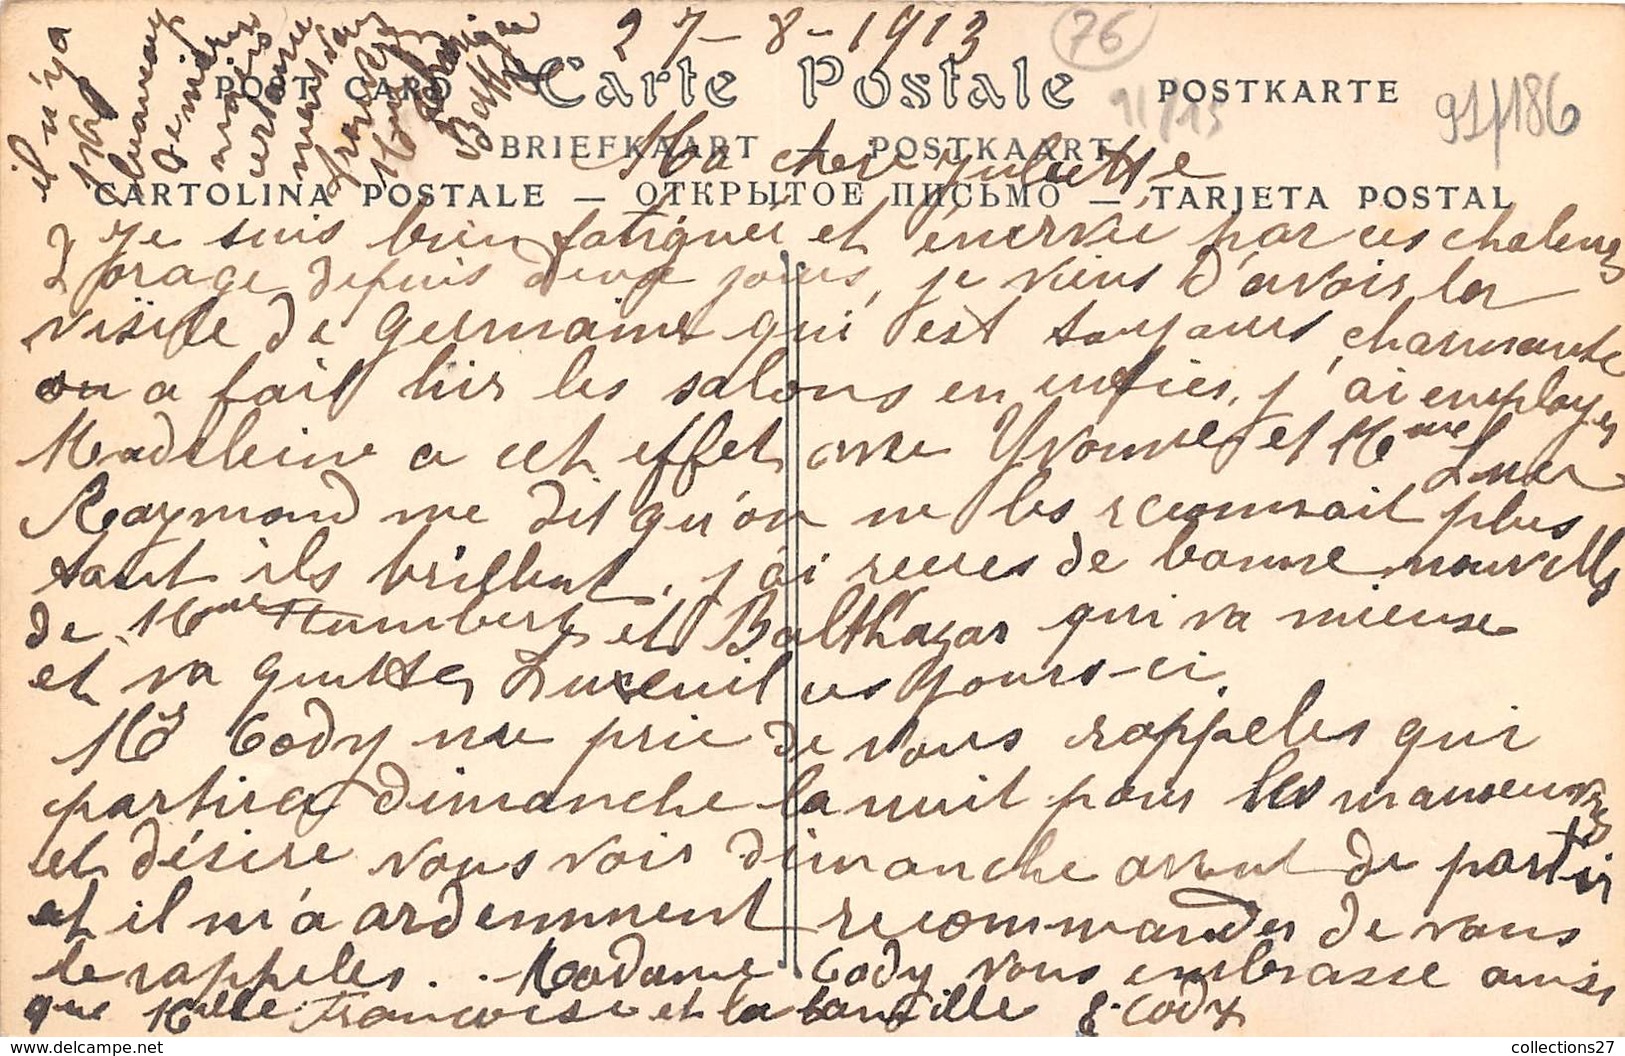 27-8-1913
76
91/15
91/186
POST CARD Carte Postale POSTKARTE
BRIEFKAART — POSTKAART
CARTOLINA POSTALE — ОТКРЫТОЕ ПИСЬМО — TARJETA POSTAL
Ma chere Juliette
Je suis bien fatiguée et énervée par ces chaleurs
orage depuis deux jours, je viens d'avoir la
visite de Germaine qui est toujours charmante
on a fait hier les salons en entier, j'ai employer
Madeleine a cet effet avec Yvonne et Mme
Raymond me dit qu'on ne les reconnait plus
tant ils brillent, j'ai recues de bonne nouvelles
de Mme Humbert et Balthazar qui va mieux
et va quitter Luxeuil ces jours-ci
Mr Cody me prie de vous rappeler qui
partira dimanche la nuit pour les manoeuvres
et désire vous voir dimanche avant de partir
et il m'a ardemment recommander de vous
le rappeler. . Madame Cody vous embrasse ainsi
que Melle Francoise et la famille E. Cody
il n'y a
collections27